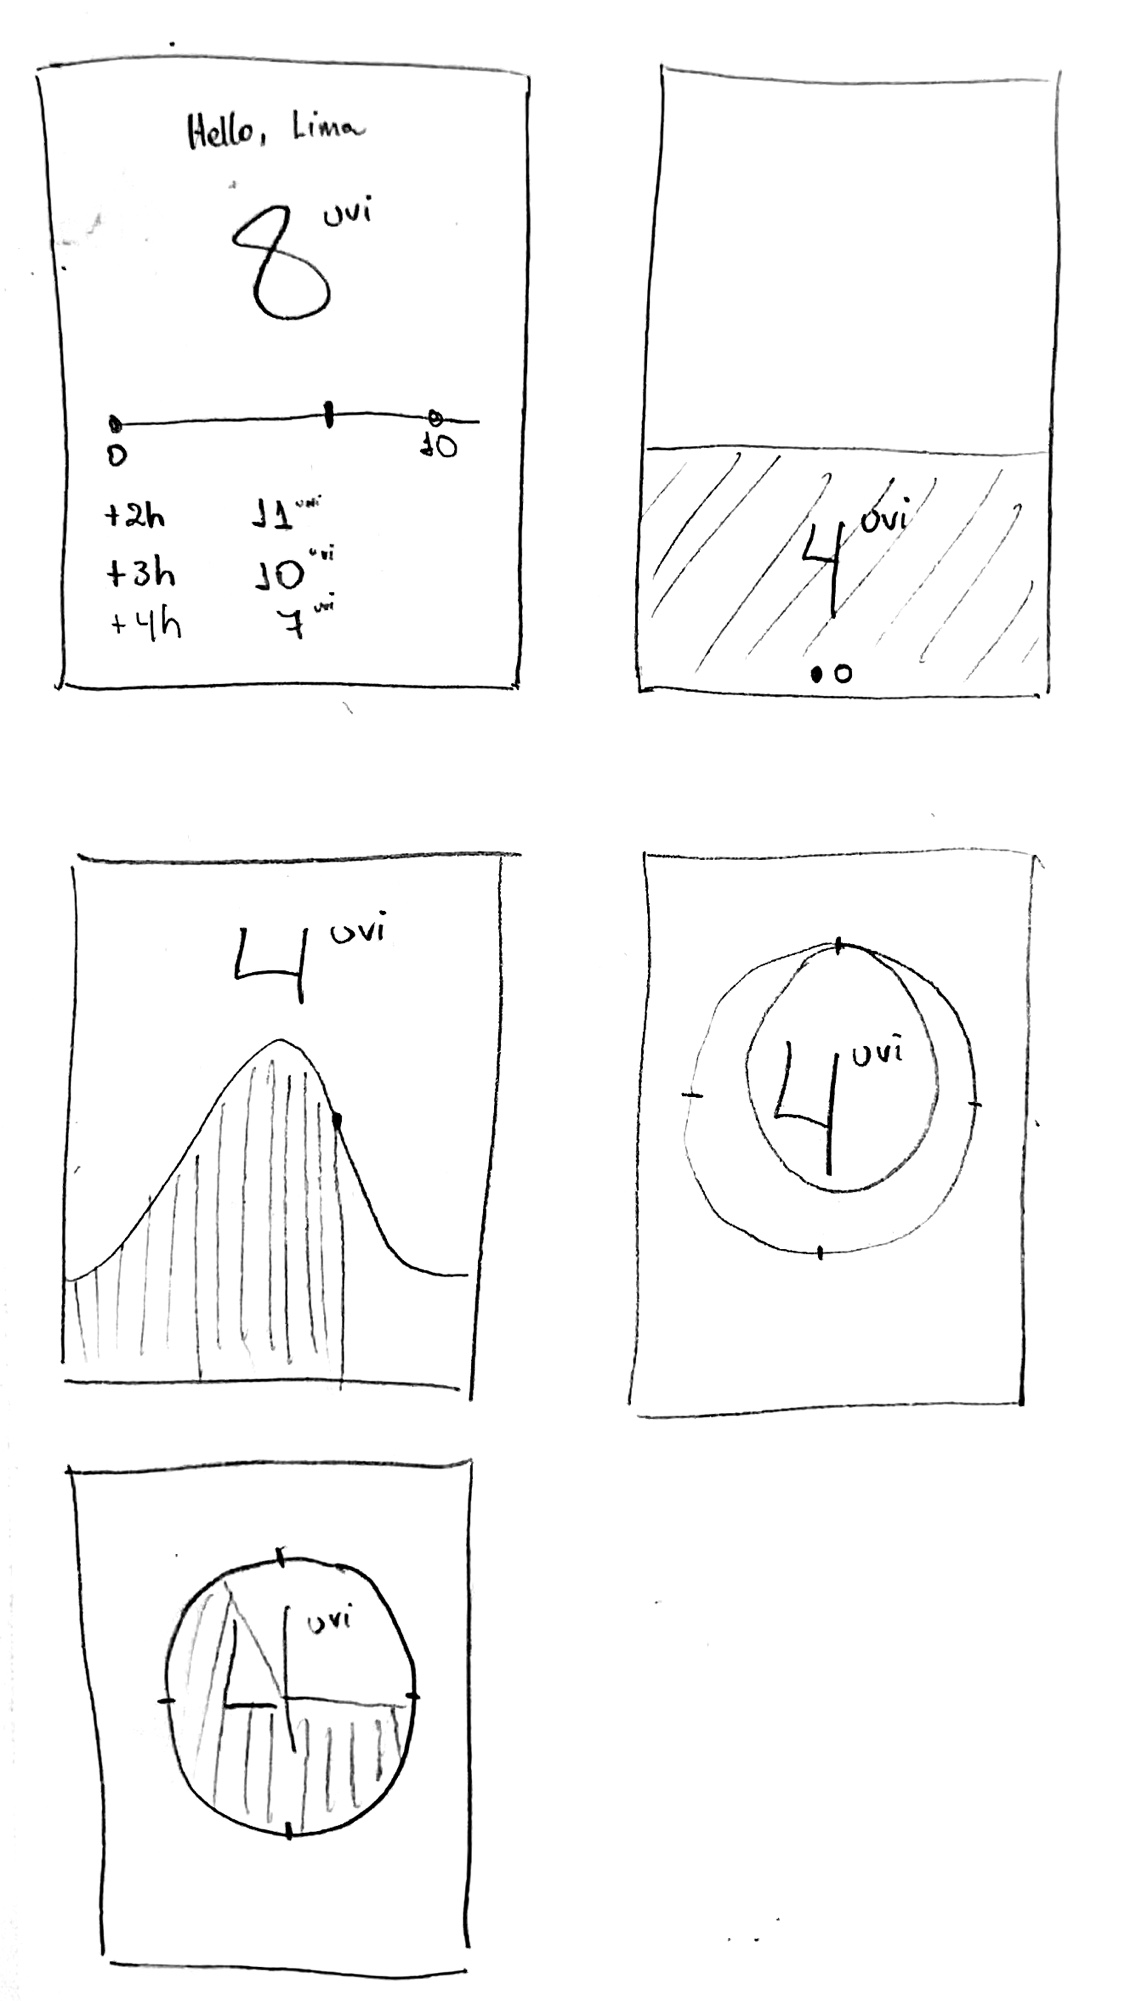 Hello, Lima
8 uvi
0 10
+2h 11 uvi
+3h 10 uvi
+4h 7 uvi
4 uvi
4 uvi
4 uvi
4 uvi